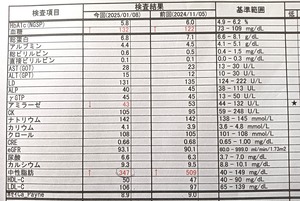 検査項目 検査結果 基準範囲 低
今回(2025/01/08) 前回(2024/11/05)
HbA1c(NGSP) 5.8 6.0 4.9 - 6.2 %
血糖 ↑ 132 ↑ 122 73 - 109 mg/dL
総蛋白 6.8 7.1 6.6 - 8.1 g/dL
アルブミン 4.4 4.5 4.1 - 5.1 g/dL
総ビリルビン 0.6 0.5 0.4 - 1.5 mg/dL
直接ビリルビン 0.1 0.1 0.0 - 0.3 mg/dL
AST(GOT) 28 23 13 - 30 U/L
ALT(GPT) 15 12 10 - 30 U/L
LD 131 135 124 - 222 U/L
ALP 40 45 38 - 113 U/L
γGTP 45 45 13 - 50 U/L
アミラーゼ ↓ 43 53 44 - 132 U/L ★
CK 105 95 59 - 248 U/L
ナトリウム 142 142 138 - 145 mmol/L
カリウム 4.1 3.9 3.6 - 4.8 mmol/L
クロール 108 105 101 - 108 mmol/L
CRE 0.66 0.68 0.65 - 1.00 mg/dL
eGFR 93.1 90.1 mL/min/1.73m2
尿酸 6.6 6.3 3.7 - 7.0 mg/dL
カルシウム 9.3 9.5 8.8 - 10.1 mg/dL
中性脂肪 ↑ 347 ↑ 509 40 - 149 mg/dL
HDL-C 50 47 40 - 90 mg/dL
LDL-C 106 97 65 - 139 mg/dL
Payne 8.9 9.0